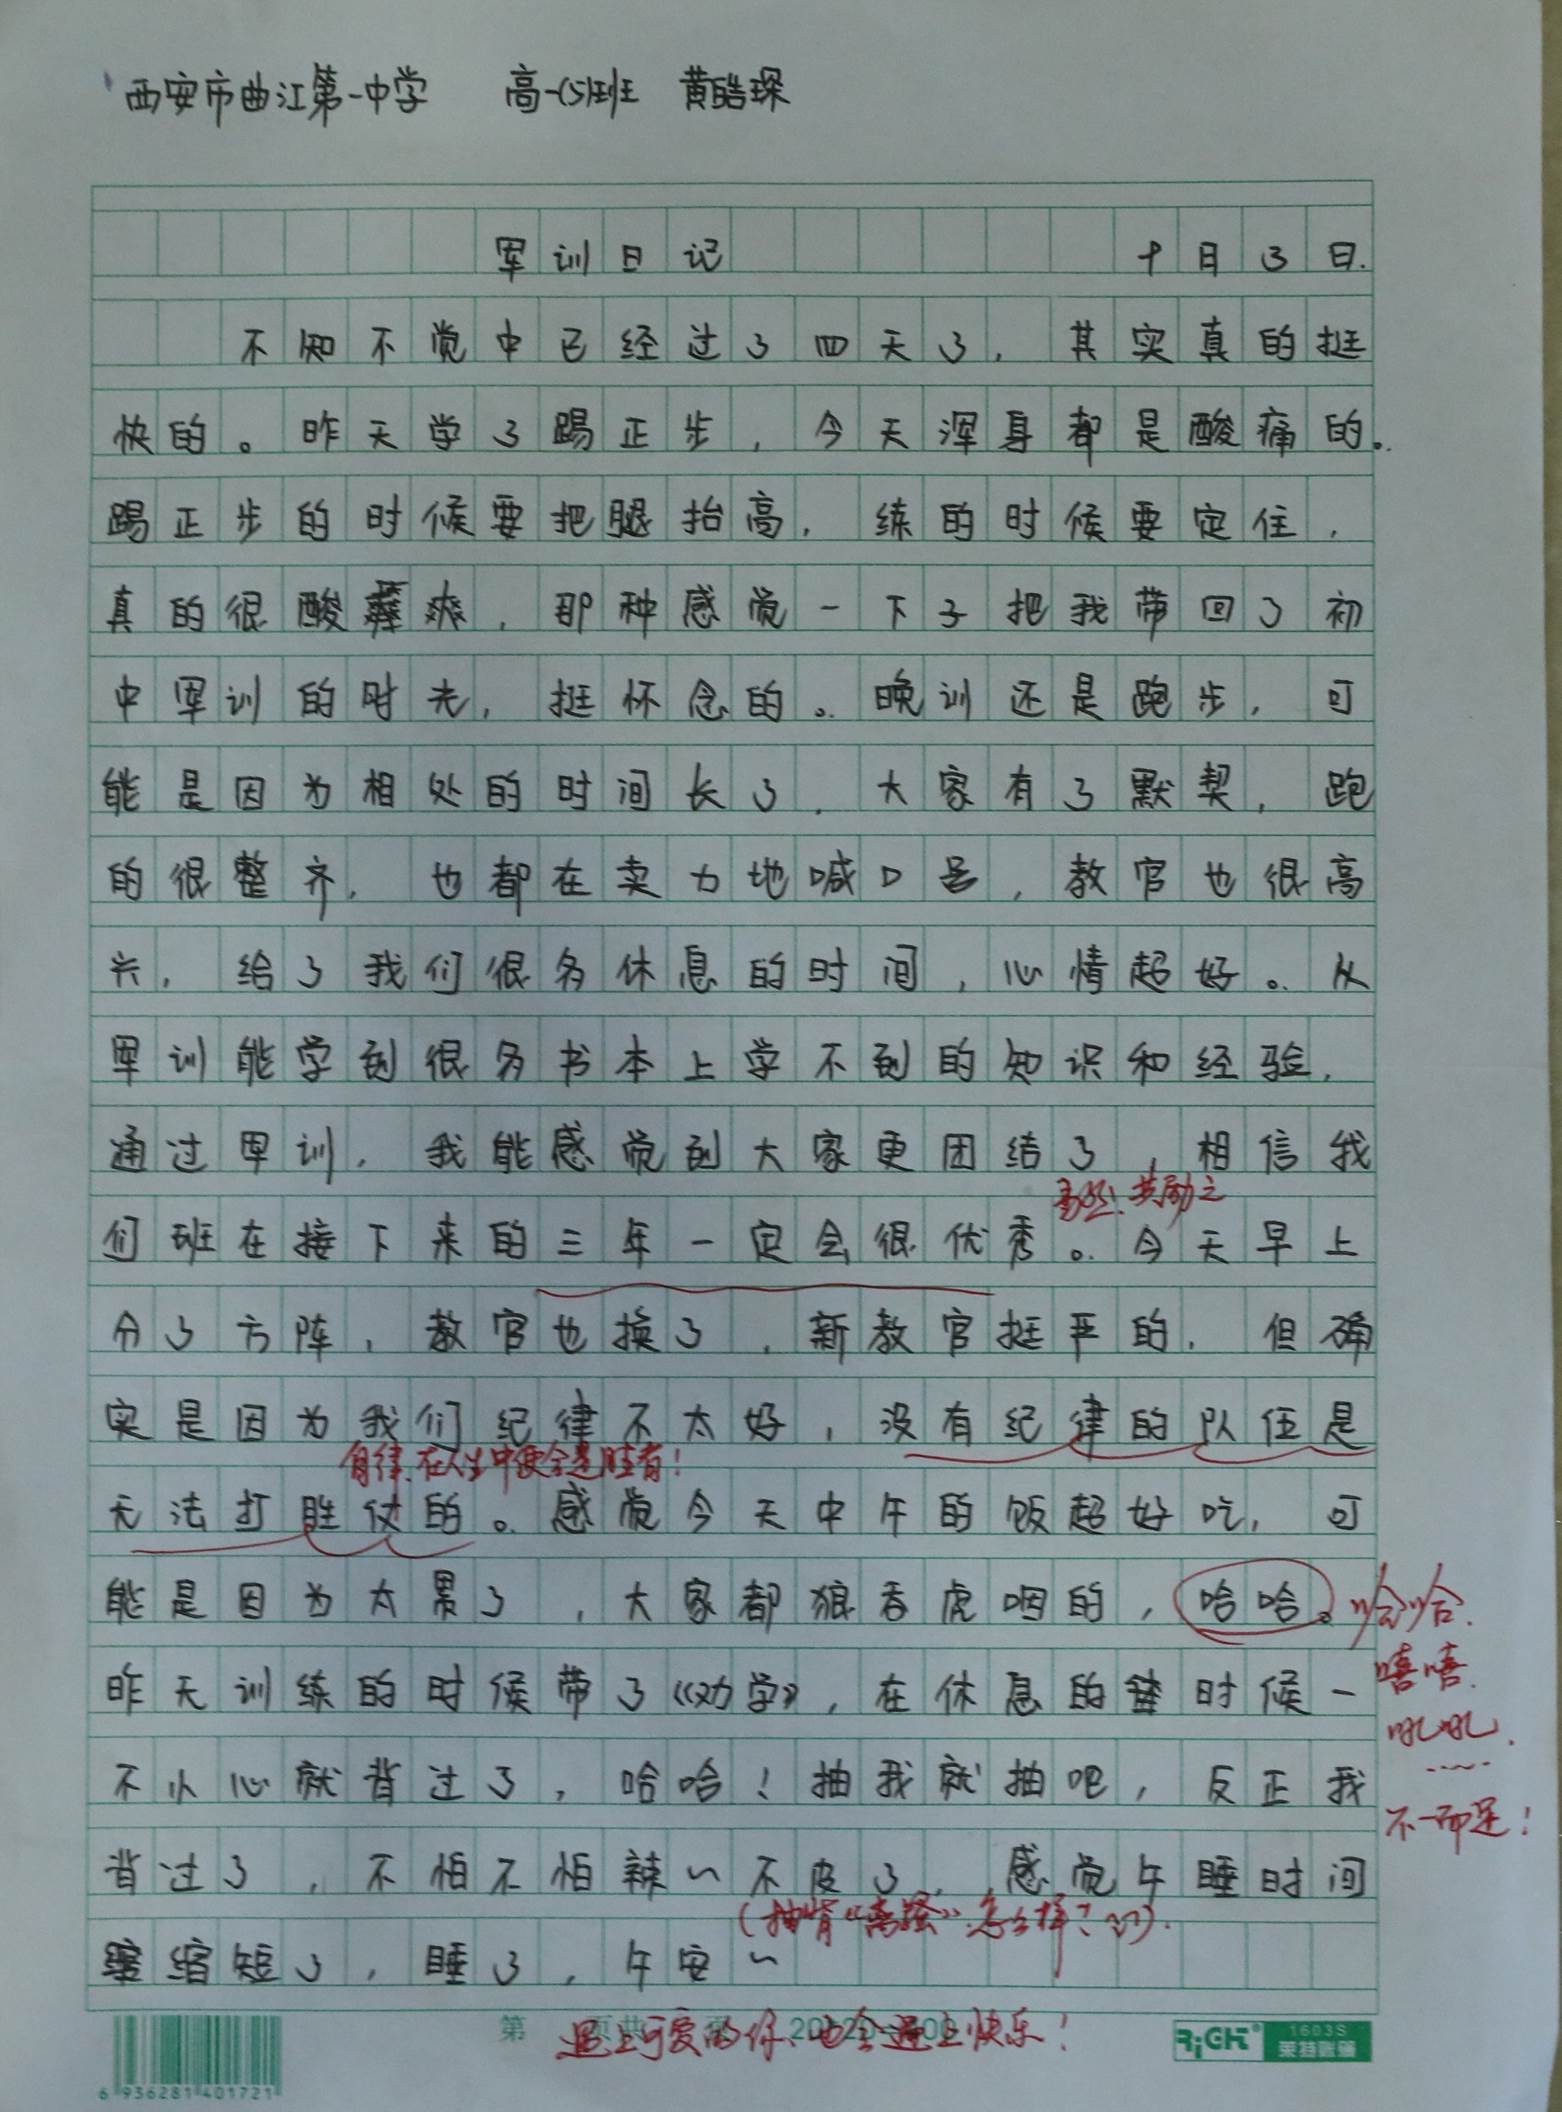 西安市曲江第一中学 高一(5)班 黄皓琛
军训日记 十月3日.
不知不觉中已经过了四天了，其实真的挺
快的。昨天学了踢正步，今天浑身都是酸痛的。
踢正步的时候要把腿抬高，练的时候要定住，
真的很酸爽，那种感觉一下子把我带回了初
中军训的时光，挺怀念的。晚训还是跑步，可
能是因为相处的时间长了，大家有了默契，跑
的很整齐，也都在卖力地喊口号，教官也很高
兴，给了我们很多休息的时间，心情超好。从
军训能学到很多书本上学不到的知识和经验，
通过军训，我能感觉到大家更团结了，相信我
共勉之
们班在接下来的三年一定会很优秀。今天早上
分了方阵，教官也换了，新教官挺严的，但确
实是因为我们纪律不太好，没有纪律的队伍是
自律，在人生中便会是胜者！
无法打胜仗的。感觉今天中午的饭超好吃，可
能是因为太累了，大家都狼吞虎咽的，哈哈。哈哈.
昨天训练的时候带了《劝学》，在休息的时候一
嘻嘻.
吼吼.
……
不小心就背过了，哈哈！抽我就抽吧，反正我
不一而足！
背过了，不怕不怕辣~不皮了，感觉午睡时间
(抽背《离骚》怎么样？).
缩短了，睡了，午安~
遇上可爱的你、也会遇上快乐！
第 页共 页 20×20=400
RiGHT® 1603S
莱特账簿
6 936281 401721